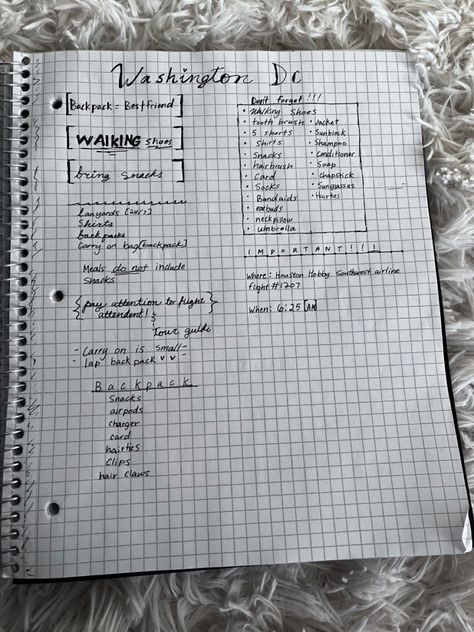 Washington Dc
[Backpack = Bestfriend]
[WALKING shoes]
[bring snacks]
lanyards [24/7]
Shirts
back packs
Carry on bag [backpack]
Meals do not include
Snacks
{pay attention to flight
attendent! &
Tour guide}
- Carry on is small -
- lap backpack v v
Backpack
Snacks
airpods
charger
card
hairties
Clips
hair claws
Don't forget!!!
• Walking shoes
• tooth brush
• 5 shorts
• Shirts
• Snacks
• hairbrush
• Card
• Socks
• Bandaids
• earbuds
• neck pillow
• umbrella
• Jacket
• Sunblock
• Shampoo
• Conditioner
• Soap
• Chapstick
• Sunglasses
• Hairties
IMPORTANT!!!
Where: Houston Hobby Southwest airline
flight #1207
When: 6:25 [AM]